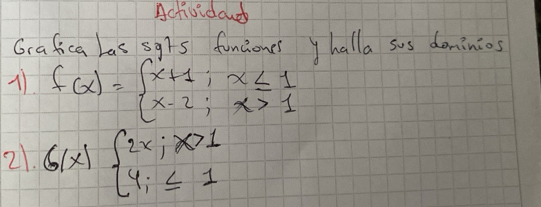 Actividad
Grafica las sgts funciones y halla sus dominios
1). f(x) = { x+1 ; x ≤ 1
x-2 ; x > 1
2). G(x) { 2x ; x>1
4; ≤ 1